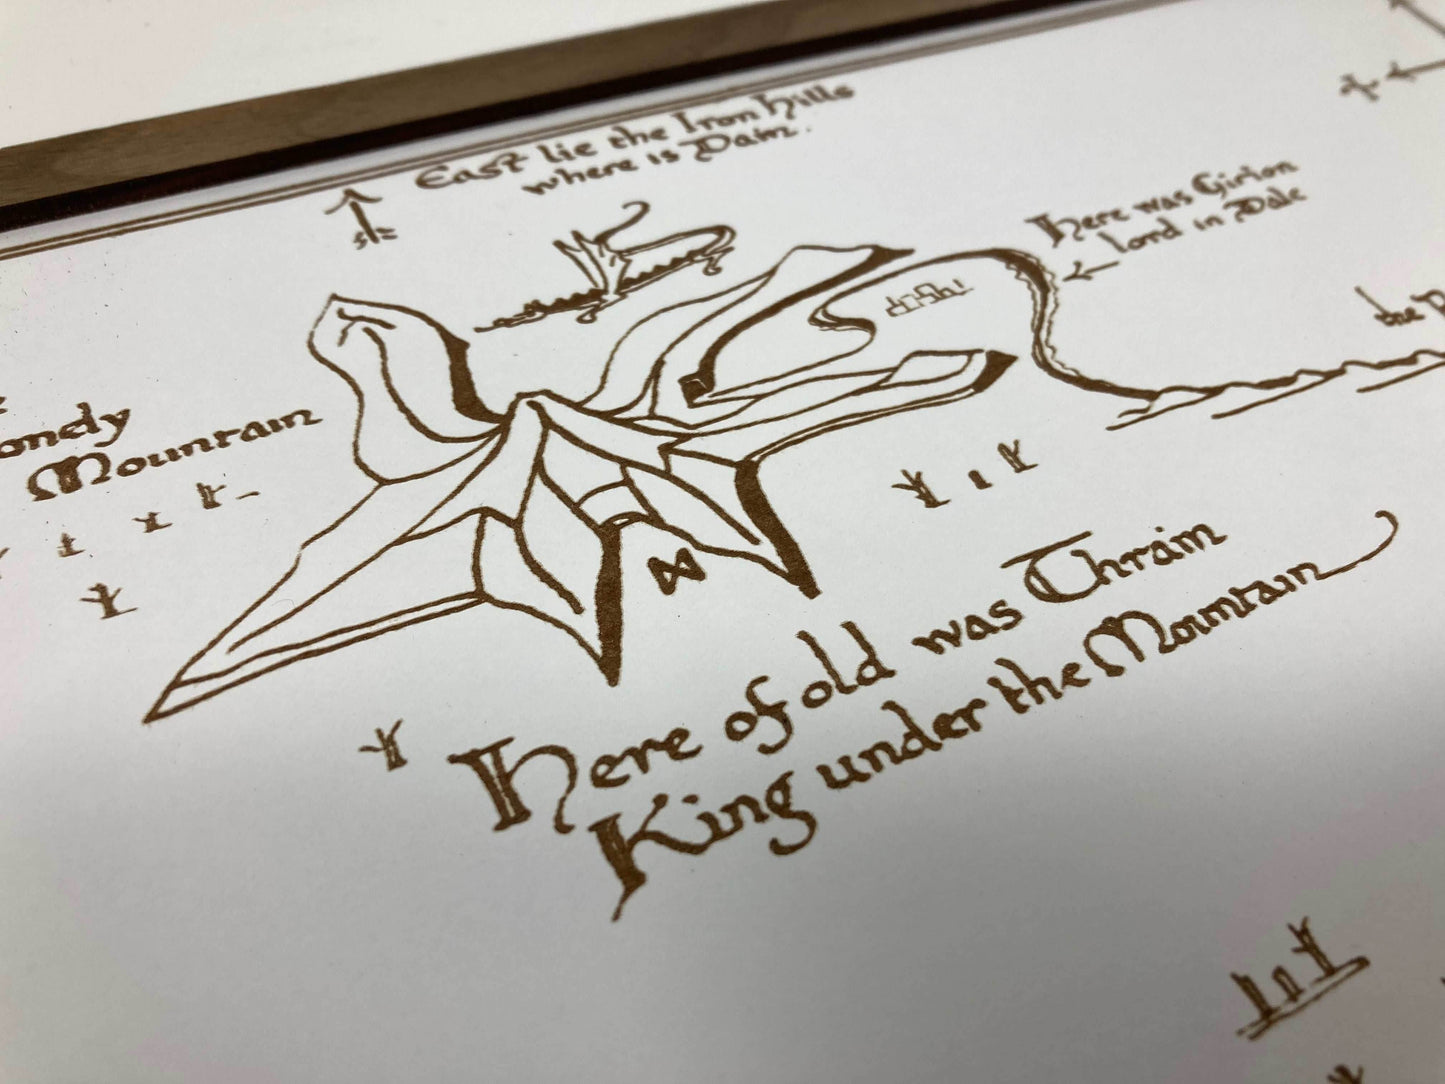 East lie the Iron Hills
where is Dain.
Here was Girion
lord in Dale
Mountain
the
ᛞ
Here of old was Thrain
King under the Mountain